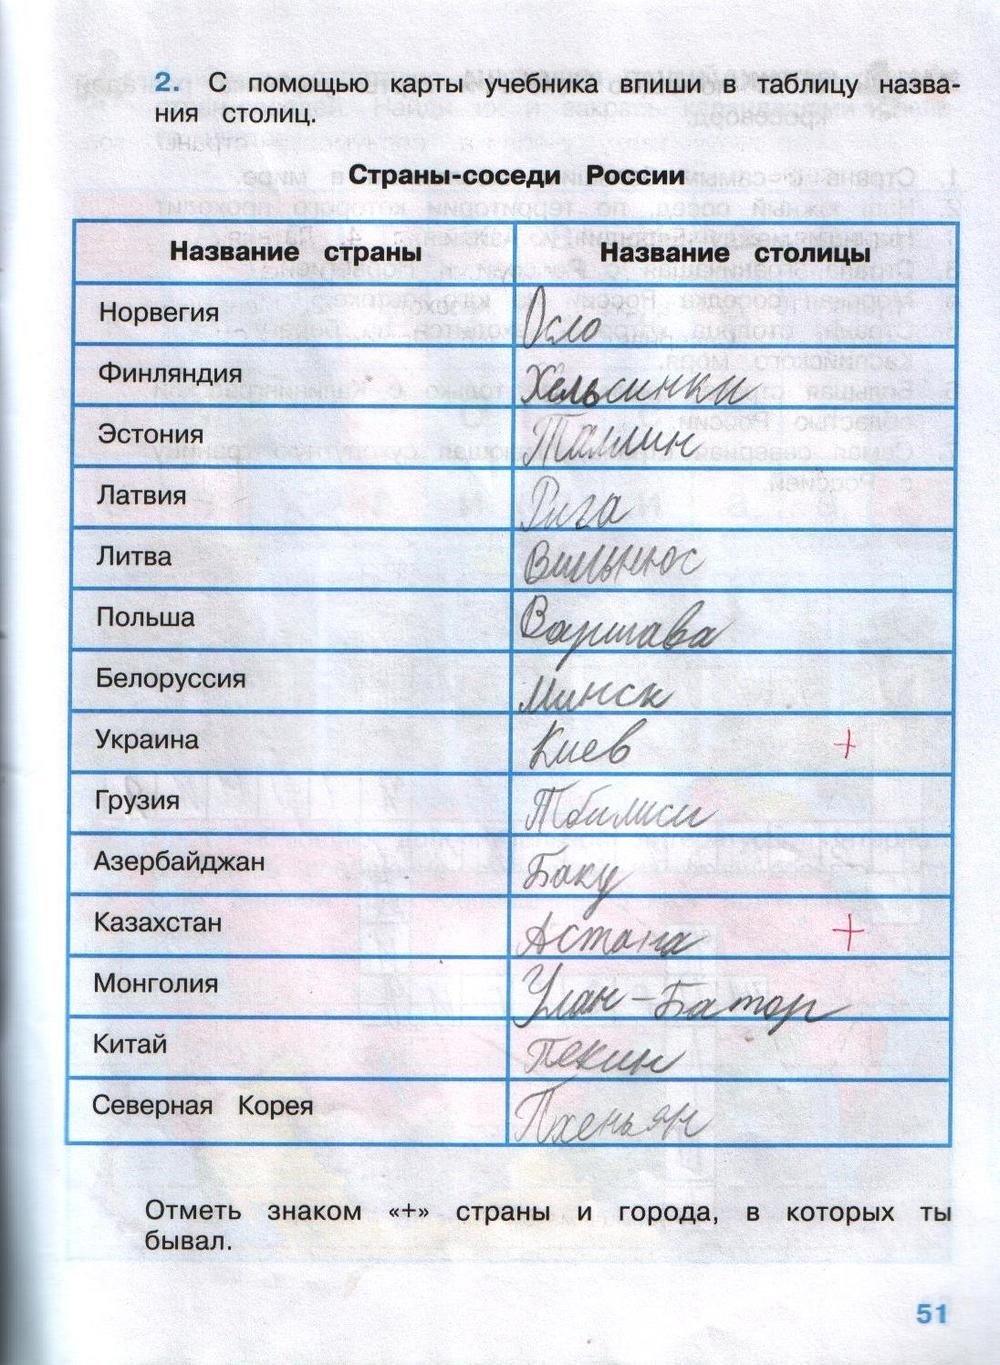 2. С помощью карты учебника впиши в таблицу назва-
ния столиц.
Страны-соседи России
Название страны Название столицы
Норвегия Осло
Финляндия Хельсинки
Эстония Таллин
Латвия Рига
Литва Вильнюс
Польша Варшава
Белоруссия Минск
Украина Киев +
Грузия Тбилиси
Азербайджан Баку
Казахстан Астана +
Монголия Улан-Батор
Китай Пекин
Северная Корея Пхеньян
Отметь знаком «+» страны и города, в которых ты
бывал.
51